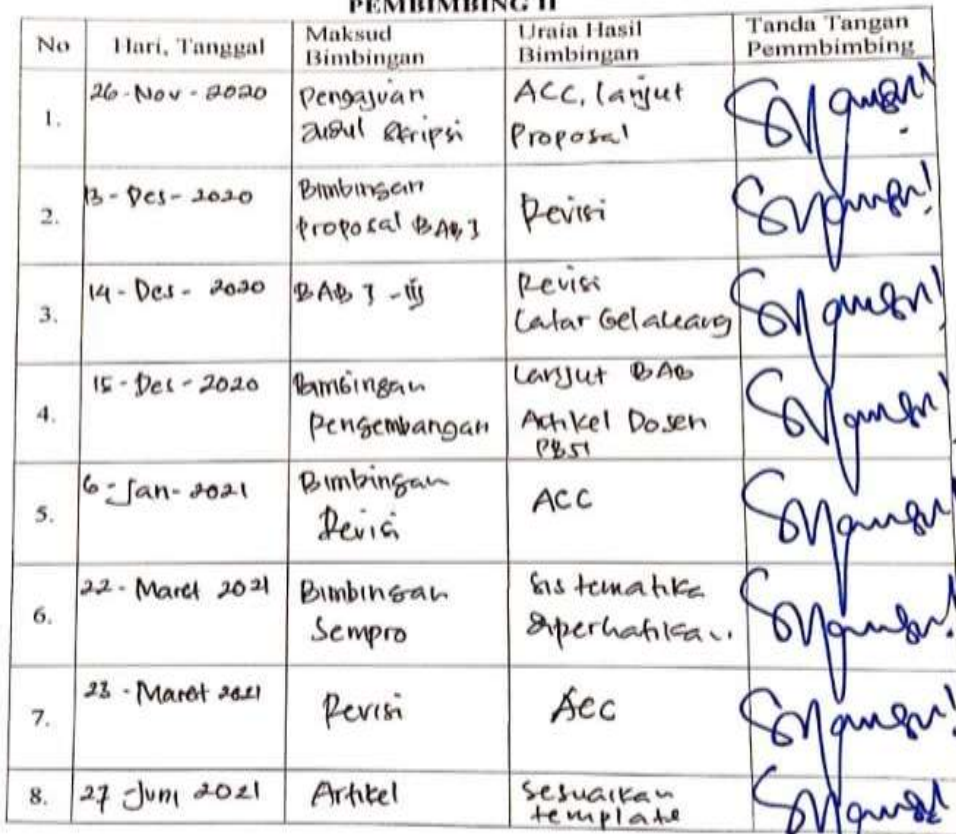 PEMBIMBING II
No
Hari, Tanggal
Maksud
Bimbingan
Uraia Hasil
Bimbingan
Tanda Tangan
Pemmbimbing
1.
26-Nov-2020
Pengajuan
Judul Skripsi
ACC, lanjut
Proposal
2.
13-Des-2020
Bimbingan
Proposal BAB I
Revisi
3.
14-Des-2020
BAB I-III
Revisi
Latar Belakang
4.
15-Des-2020
Bimbingan
Pengembangan
Lanjut BAB
Artikel Dosen
PBSI
5.
6-Jan-2021
Bimbingan
Revisi
ACC
6.
22-Maret 2021
Bimbingan
Sempro
Sistematika
diperhatikan..
7.
23-Maret 2021
Revisi
Acc
8.
27 Juni 2021
Artikel
Sesuaikan
template